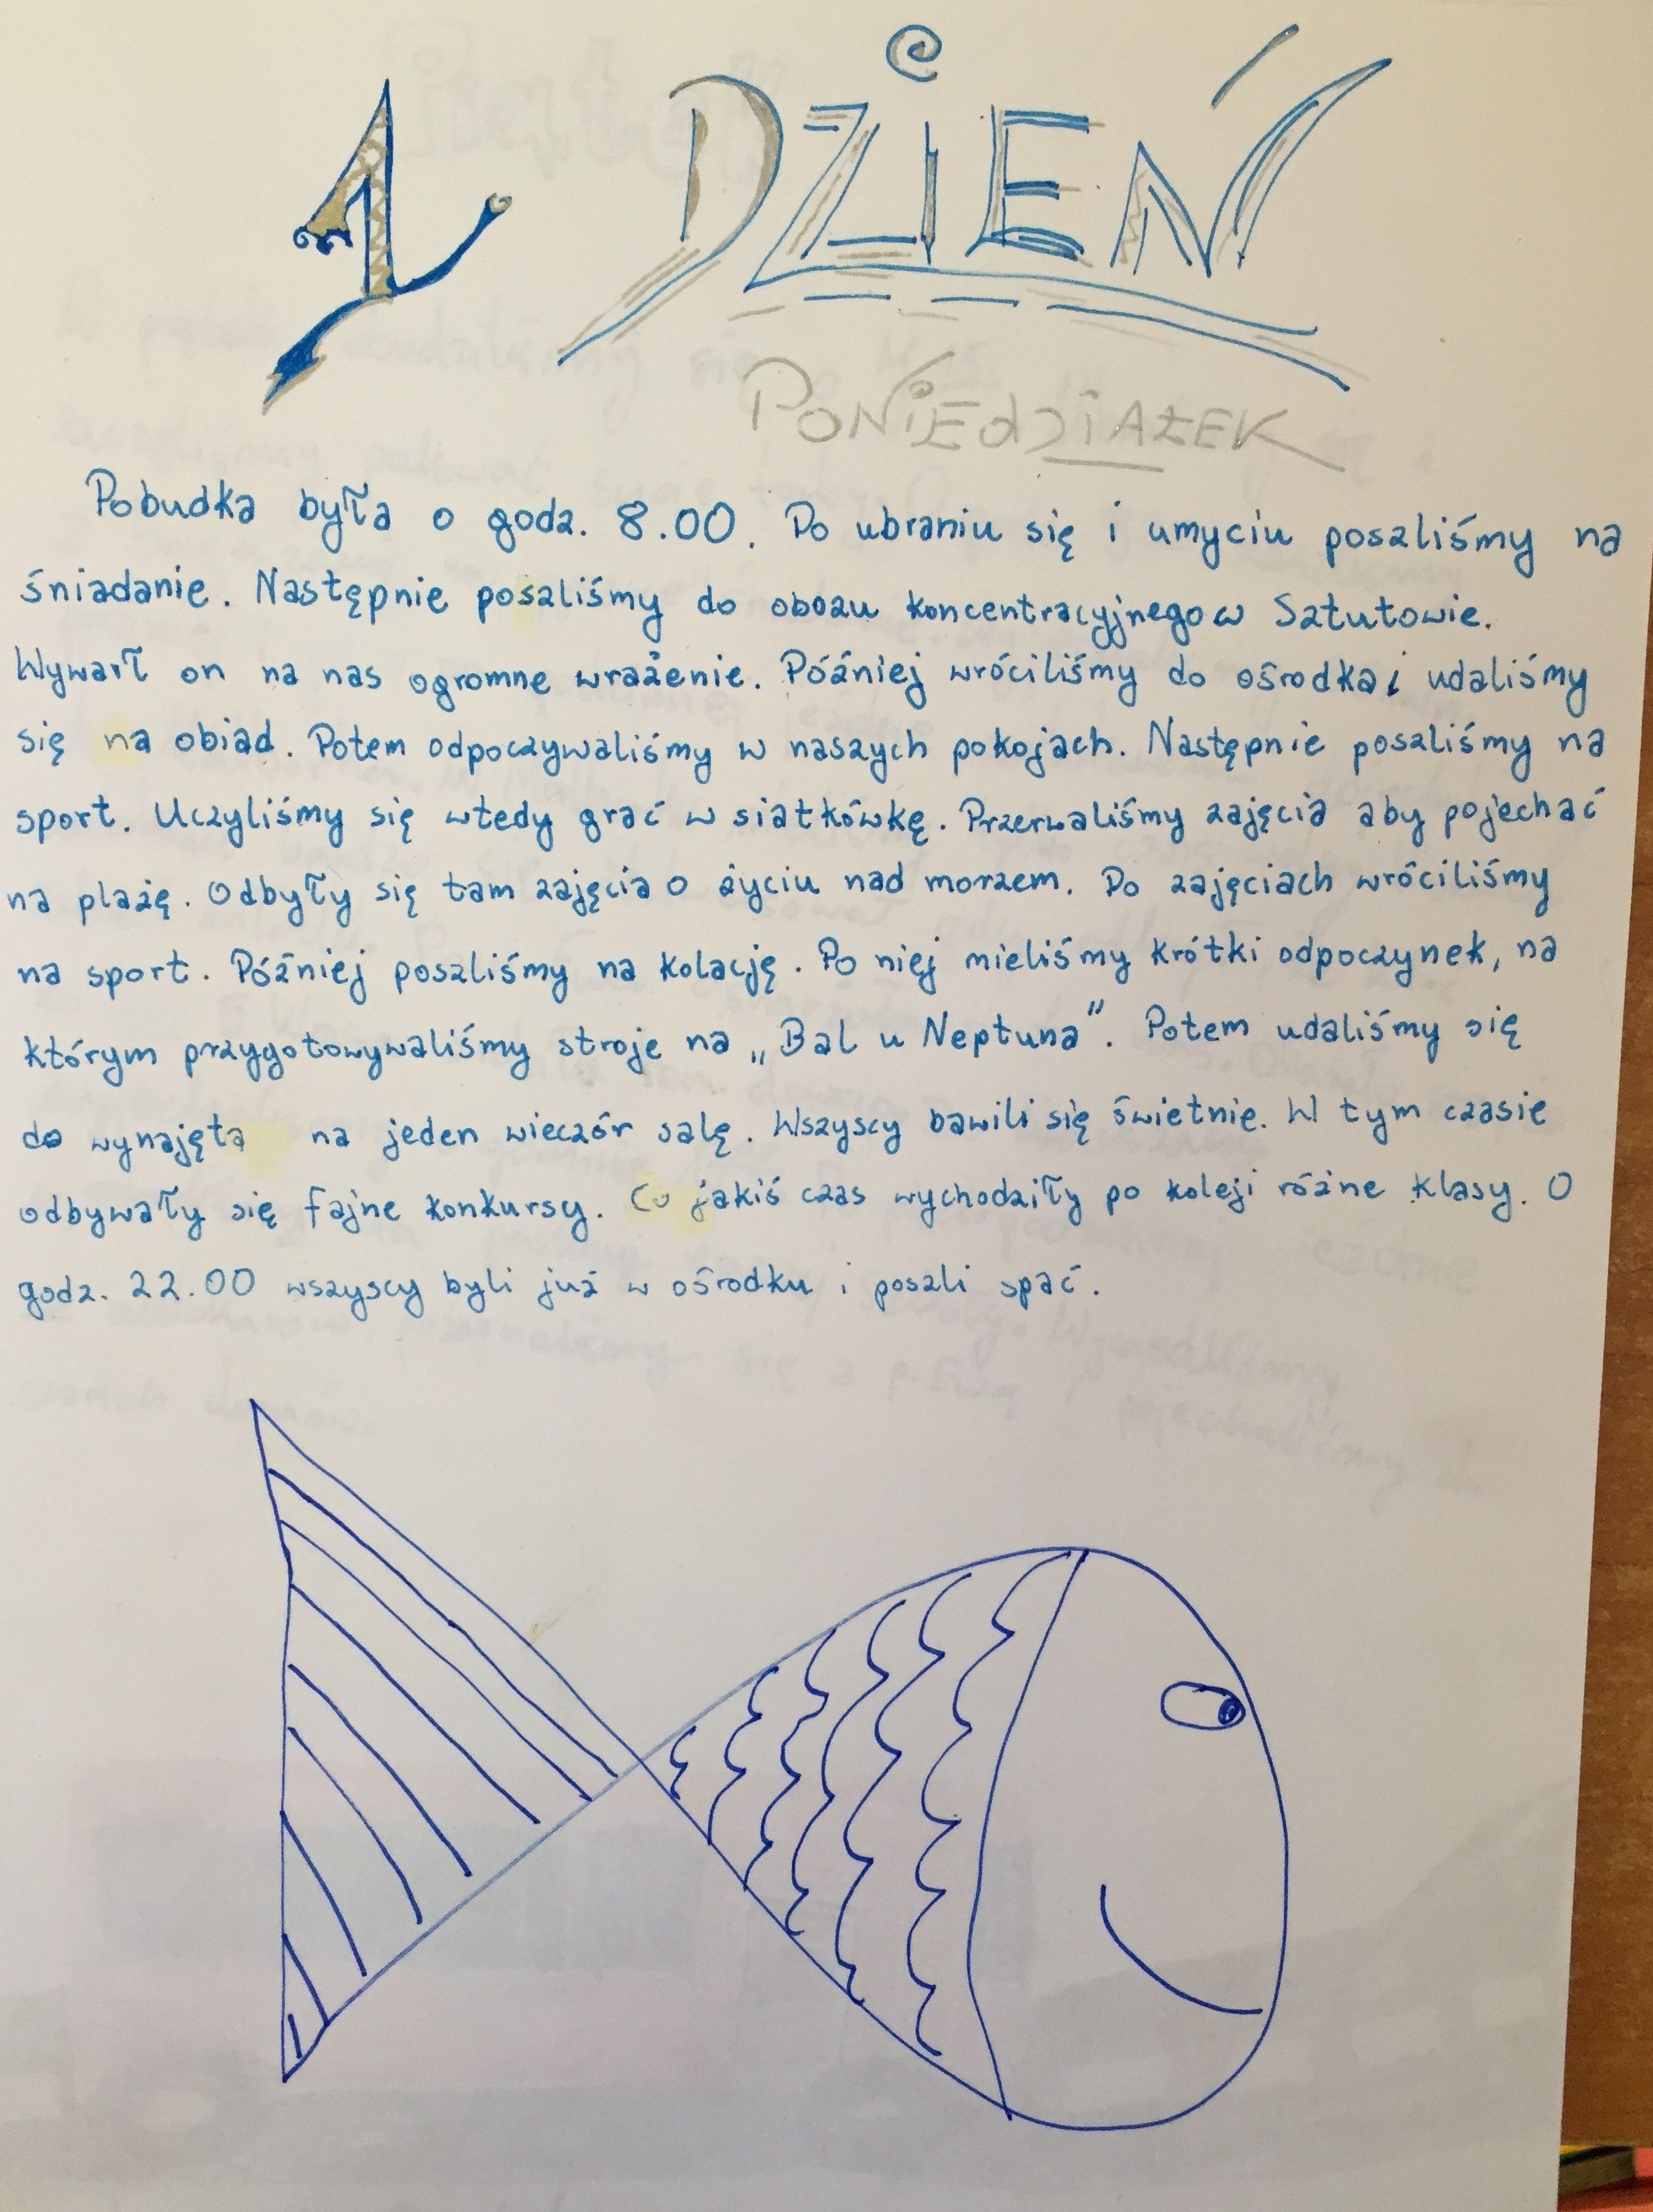 1 DZiEŃ
PONiEdZiAŁEK
Pobudka była o godz. 8.00. Po ubraniu się i umyciu poszliśmy na
śniadanie. Następnie poszliśmy do obozu koncentracyjnego w Sztutowie.
Wywarł on na nas ogromne wrażenie. Póżniej wróciliśmy do ośrodka i udaliśmy
się na obiad. Potem odpoczywaliśmy w naszych pokojach. Następnie poszliśmy na
sport. Uczyliśmy się wtedy grać w siatkówkę. Przerwaliśmy zajęcia aby pojechać
na plażę. Odbyły się tam zajęcia o życiu nad morzem. Po zajęciach wróciliśmy
na sport. Później poszliśmy na kolację. Po niej mieliśmy krótki odpoczynek, na
którym przygotowywaliśmy stroje na „Bal u Neptuna”. Potem udaliśmy się
do wynajęta na jeden wieczór salę. Wszyscy bawili się świetnie. W tym czasie
odbywały się fajne konkursy. Co jakiś czas wychodziły po koleji różne klasy. O
godz. 22.00 wszyscy byli już w ośrodku i poszli spać.